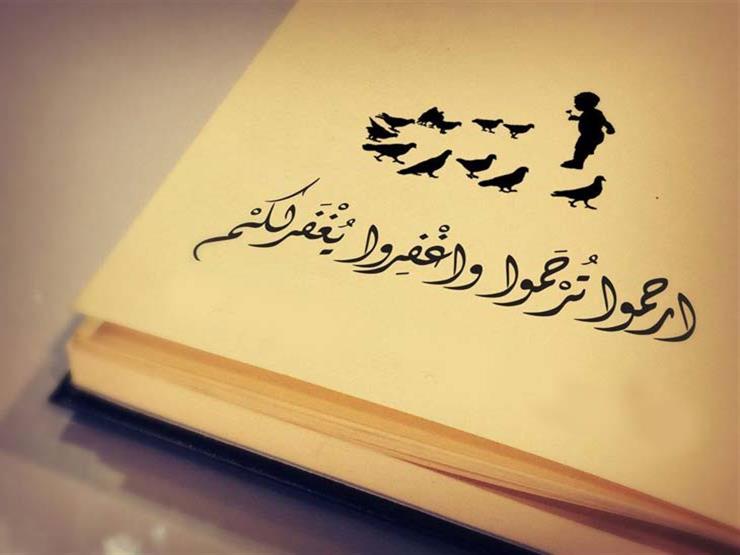 ارحموا تُرْحَموا واغْفِروا يُغْفَر لكْم